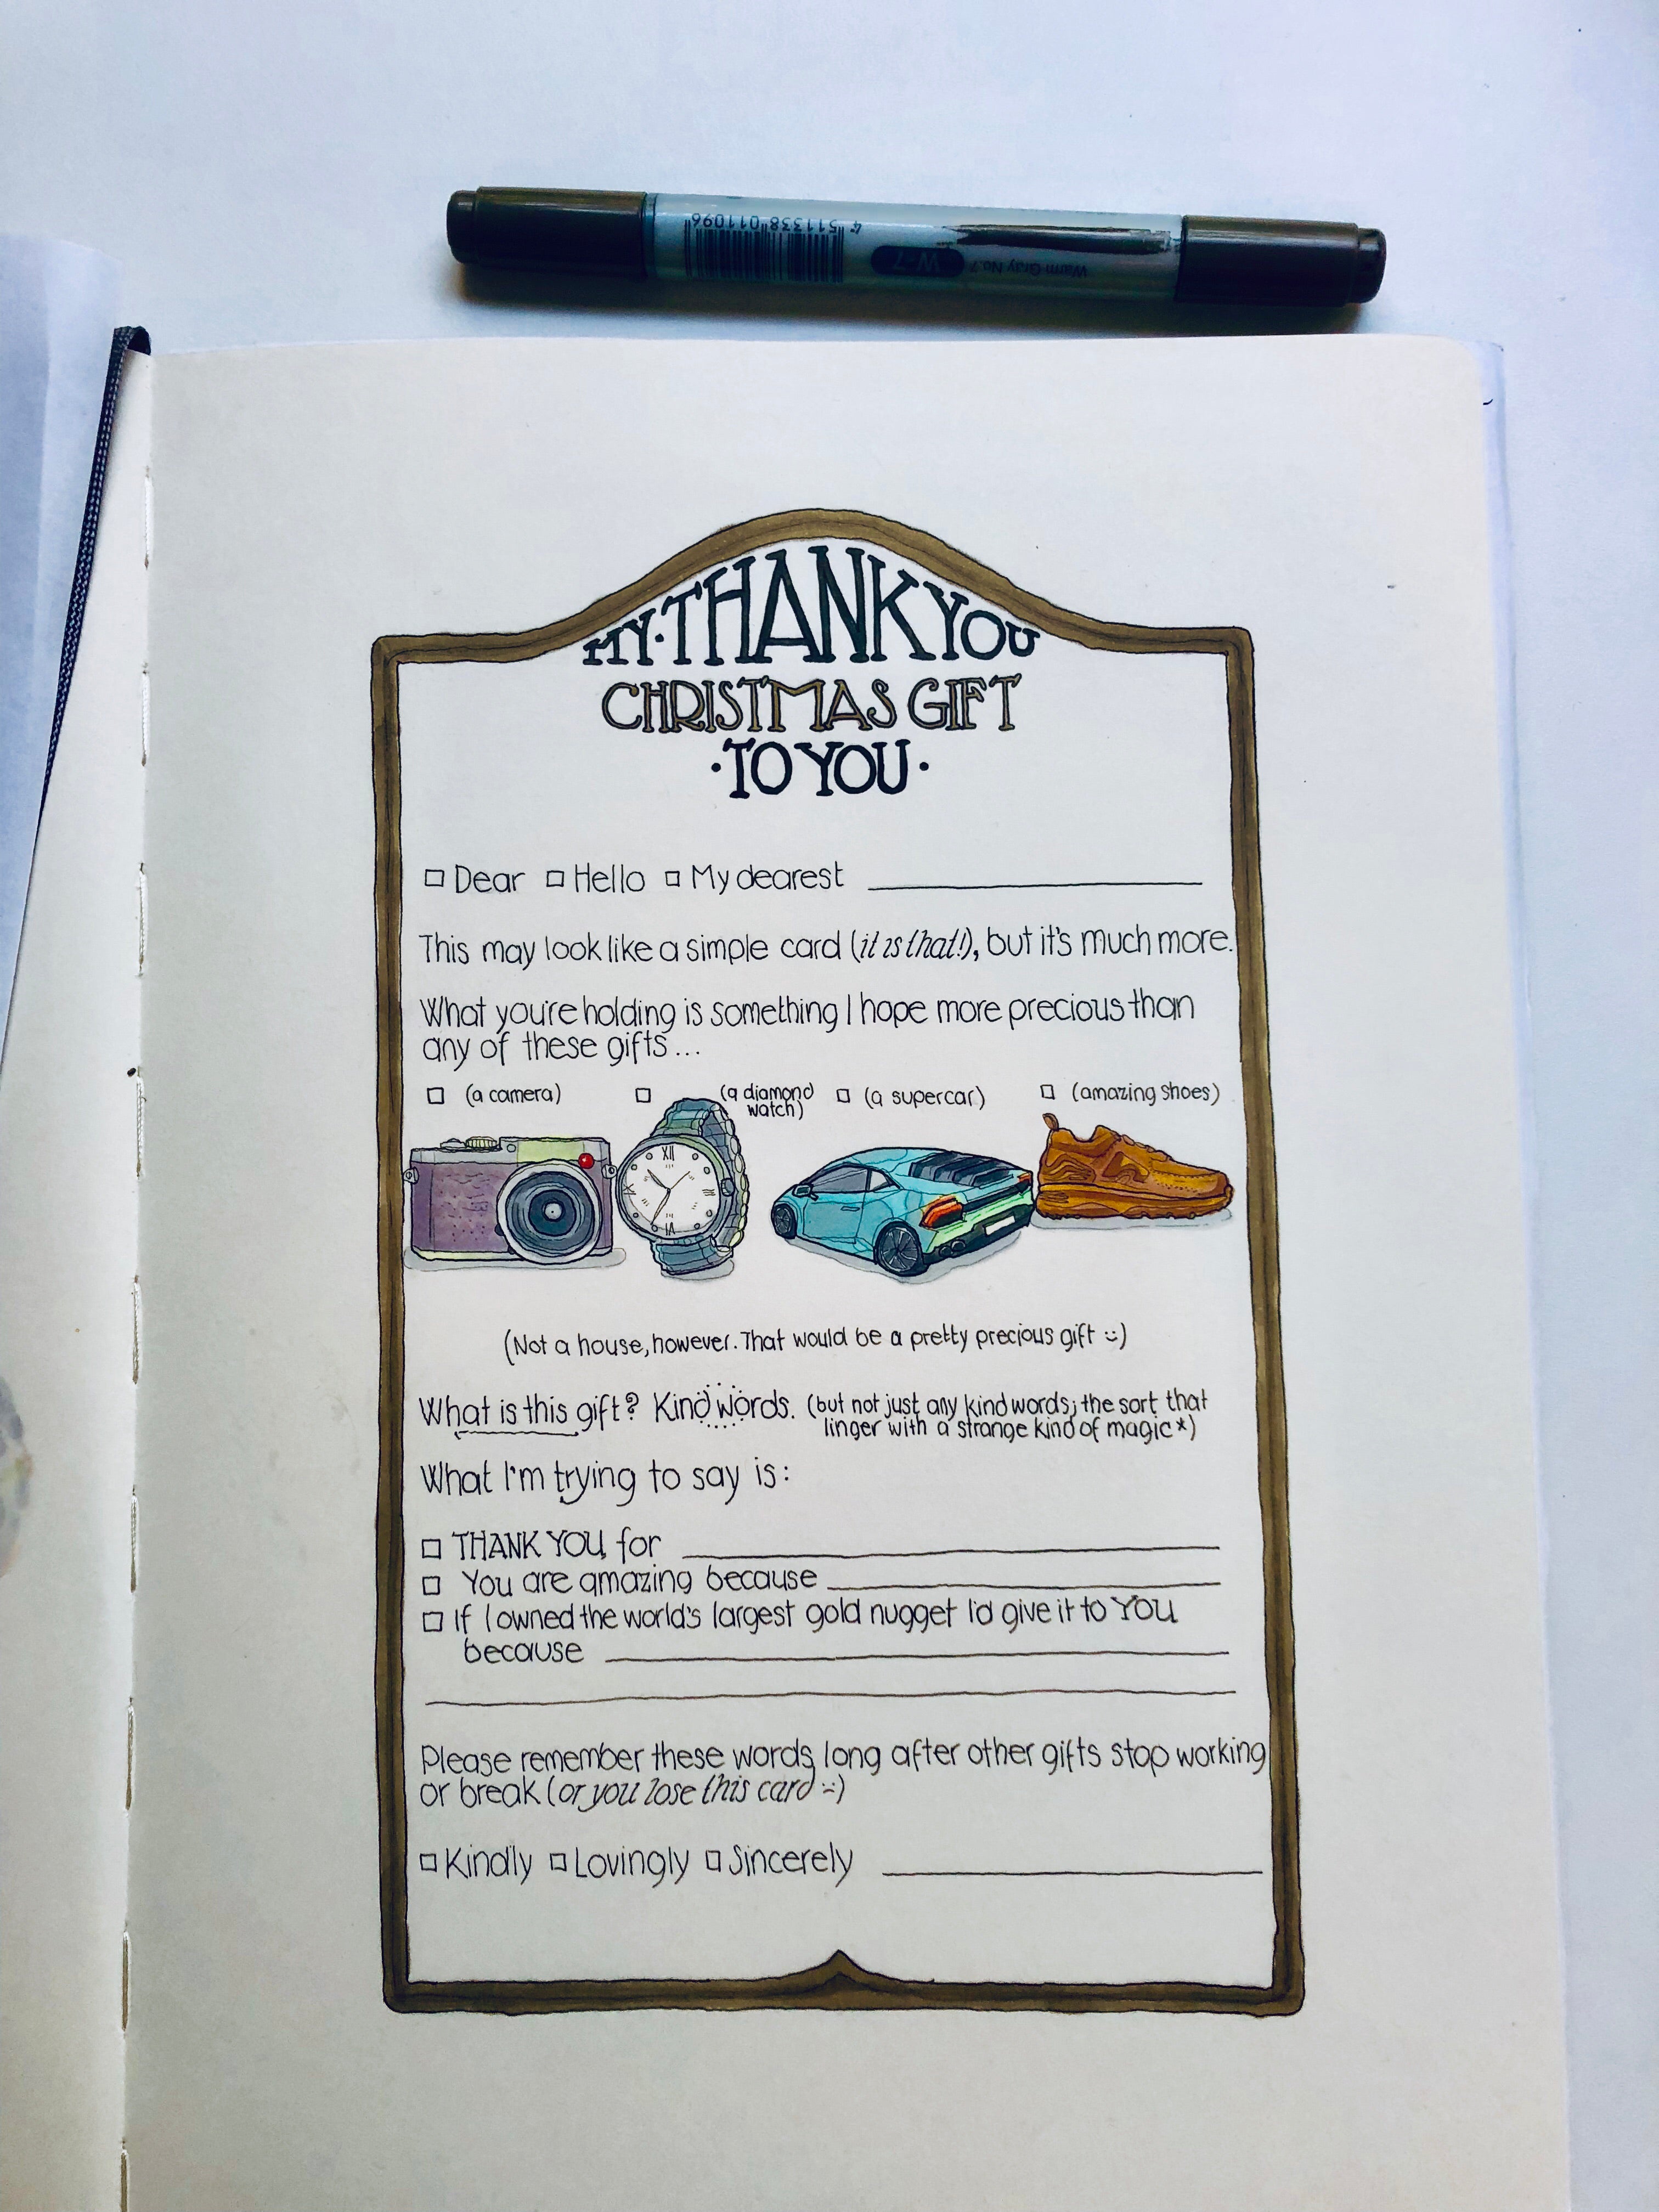 4 511338 011096
W-7
Warm Gray No.7
MY · THANK YOU
CHRISTMAS GIFT
· TO YOU ·
□ Dear □ Hello □ My dearest
This may look like a simple card (it is that!), but it's much more.
What you're holding is something I hope more precious than
any of these gifts...
□ (a camera) □ (a diamond watch) □ (a supercar) □ (amazing shoes)
XII
X
III
VI
(Not a house, however. That would be a pretty precious gift :))
What is this gift? Kind words. (but not just any kind words; the sort that
linger with a strange kind of magic*)
What I'm trying to say is:
□ THANK YOU for
□ You are amazing because
□ If I owned the world's largest gold nugget I'd give it to YOU
because
Please remember these words long after other gifts stop working
or break (or you lose this card :))
□ Kindly □ Lovingly □ Sincerely